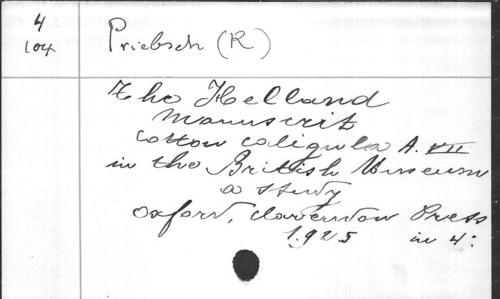 4
104
Priebsch (R)
the Helland
manuscrit
cotton caligula A. VII
in the British Museum
a study
Oxford, Clarendon Press
1925 in 4: